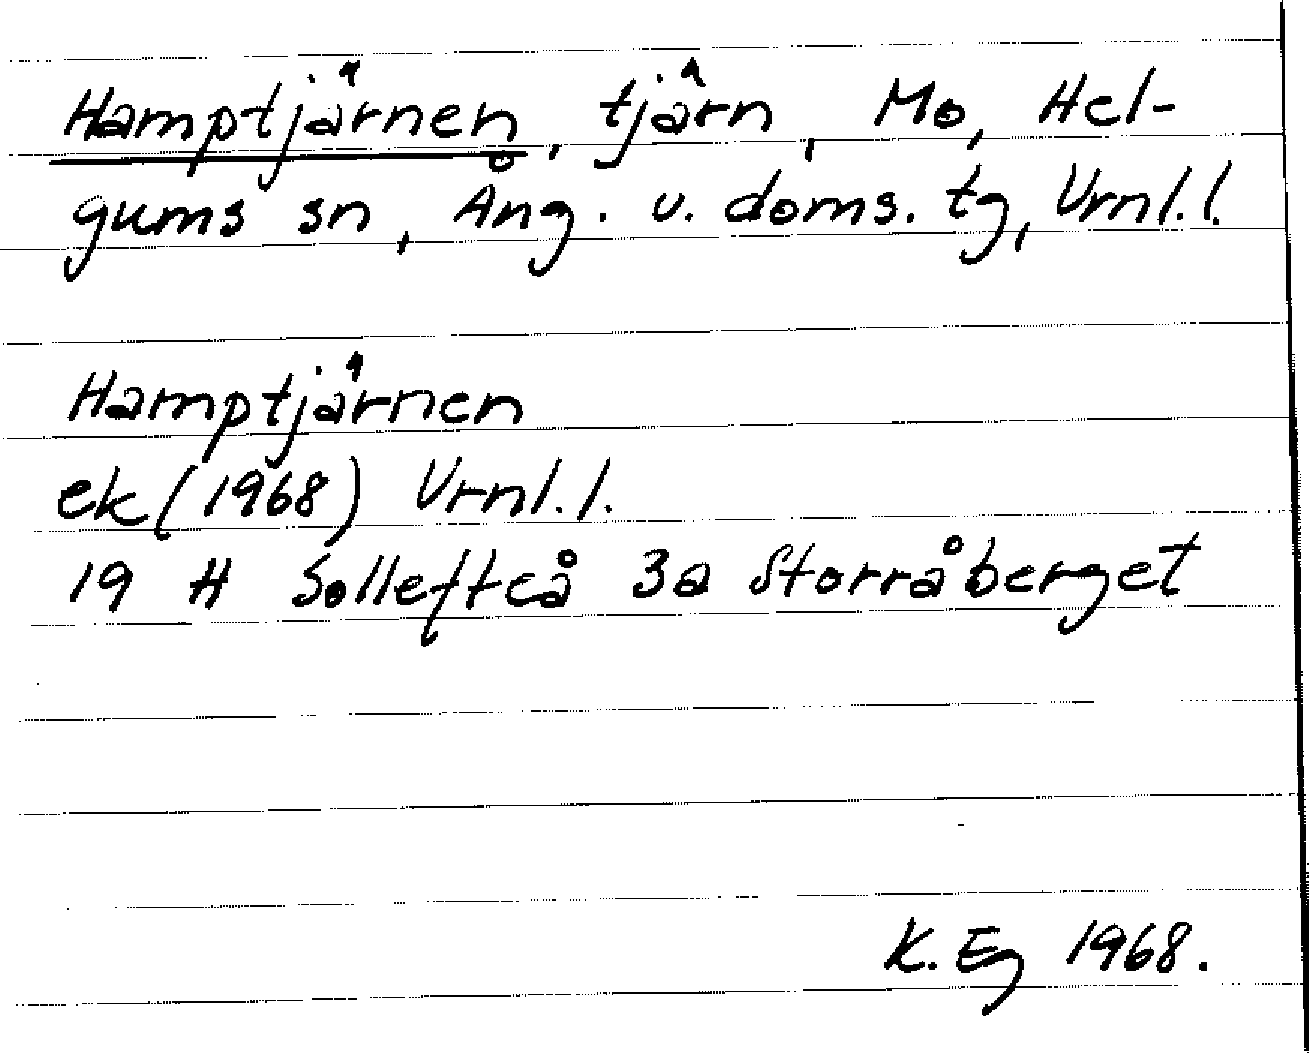 Hamptjärnen, tjärn, Mo, Hel-
gums sn, Ång. v. doms. tg, Vrnl. l.
Hamptjärnen
ek (1968) Vrnl. l.
19 H Sollefteå 3a Storråberget
K. Eg 1968.